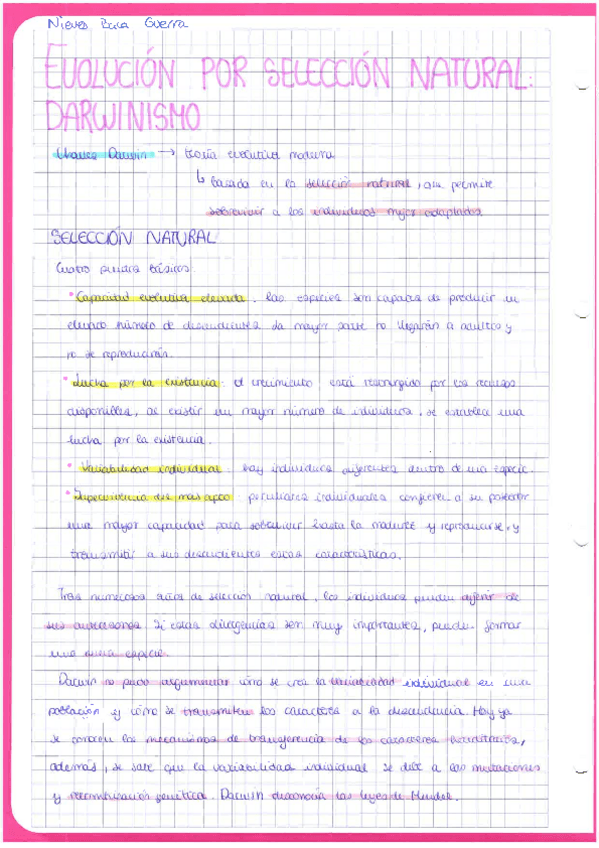 Nieves Baca Guerra
EVOLUCIÓN POR SELECCIÓN NATURAL:
DARWINISMO
Charles Darwin → teoría evolutiva moderna
↳ basada en la selección natural, que permite
sobrevivir a los individuos mejor adaptados
SELECCIÓN NATURAL
Cuatro puntos básicos:
• Capacidad evolutiva elevada: las especies son capaces de producir un
elevado número de descendientes. La mayor parte no llegarán a adultos y
no se reproducirán.
• Lucha por la existencia: el crecimiento está restringido por los recursos
disponibles, al existir un mayor número de individuos, se establece una
lucha por la existencia.
• Variabilidad individual: hay individuos diferentes dentro de una especie.
• Supervivencia del más apto: peculiares individuales confieren a su poseedor
una mayor capacidad para sobrevivir hasta la madurez y reproducirse, y
transmitir a sus descendientes estas características.
Tras numerosos años de selección natural, los individuos pueden diferir de
sus antecesores. Si estas divergencias son muy importantes, pueden formar
una nueva especie.
Darwin no pudo argumentar cómo se crea la variabilidad individual en una
población y cómo se transmiten los caracteres a la descendencia. Hoy ya
se conocen los mecanismos de transferencia de los caracteres hereditarios,
además, se sabe que la variabilidad individual se debe a las mutaciones
y recombinación genética. Darwin desconocía las leyes de Mendel.